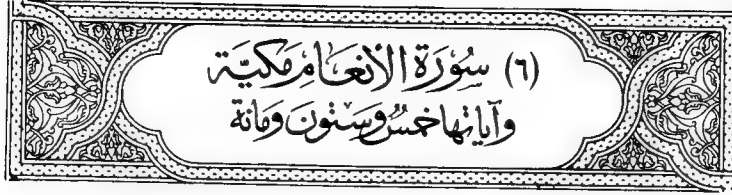 (٦) سُورَة الأنعَامِ مَكيَّة
وآياتها خمسٌ وستون ومائة